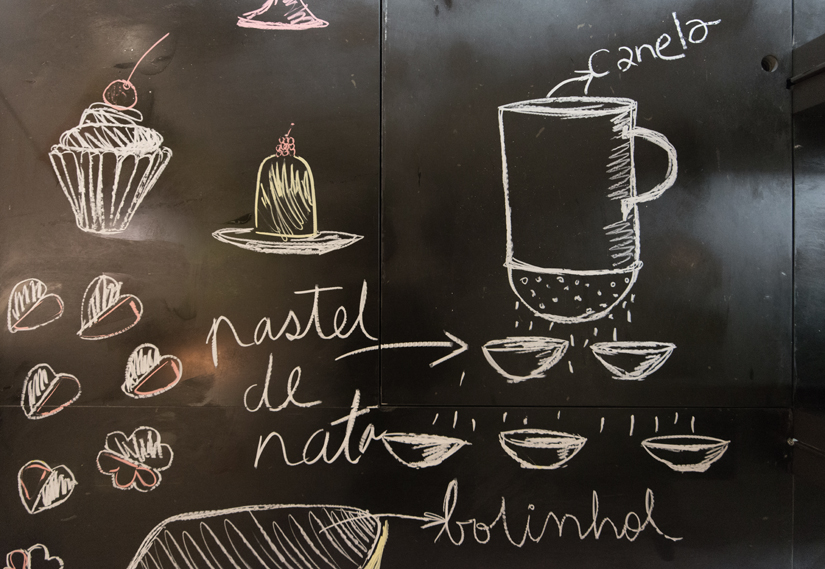 canela
pastel
de
nata
bolinhol